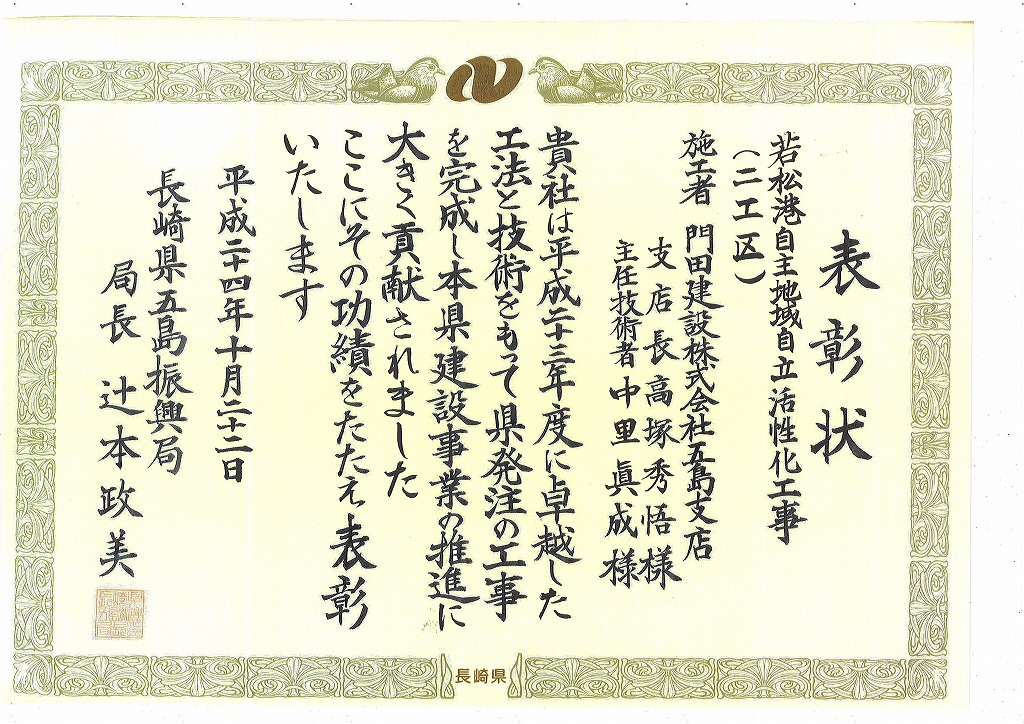 表彰状
若松港自主地域自立活性化工事
(二工区)
施工者 門田建設株式会社五島支店
支店長 高塚秀悟様
主任技術者 中里眞成様
貴社は平成二十三年度に卓越した
工法と技術をもって県発注の工事
を完成し本県建設事業の推進に
大きく貢献されました
ここにその功績をたたえ表彰
いたします
平成二十四年十月二十二日
長崎県五島振興局
局長 辻本政美
長崎県